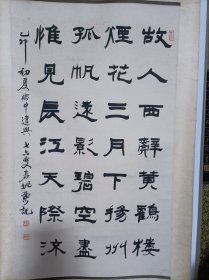 故人西辭黃鶴樓
煙花三月下揚州
孤帆遠影碧空盡
惟見長江天際流
乙卯初夏